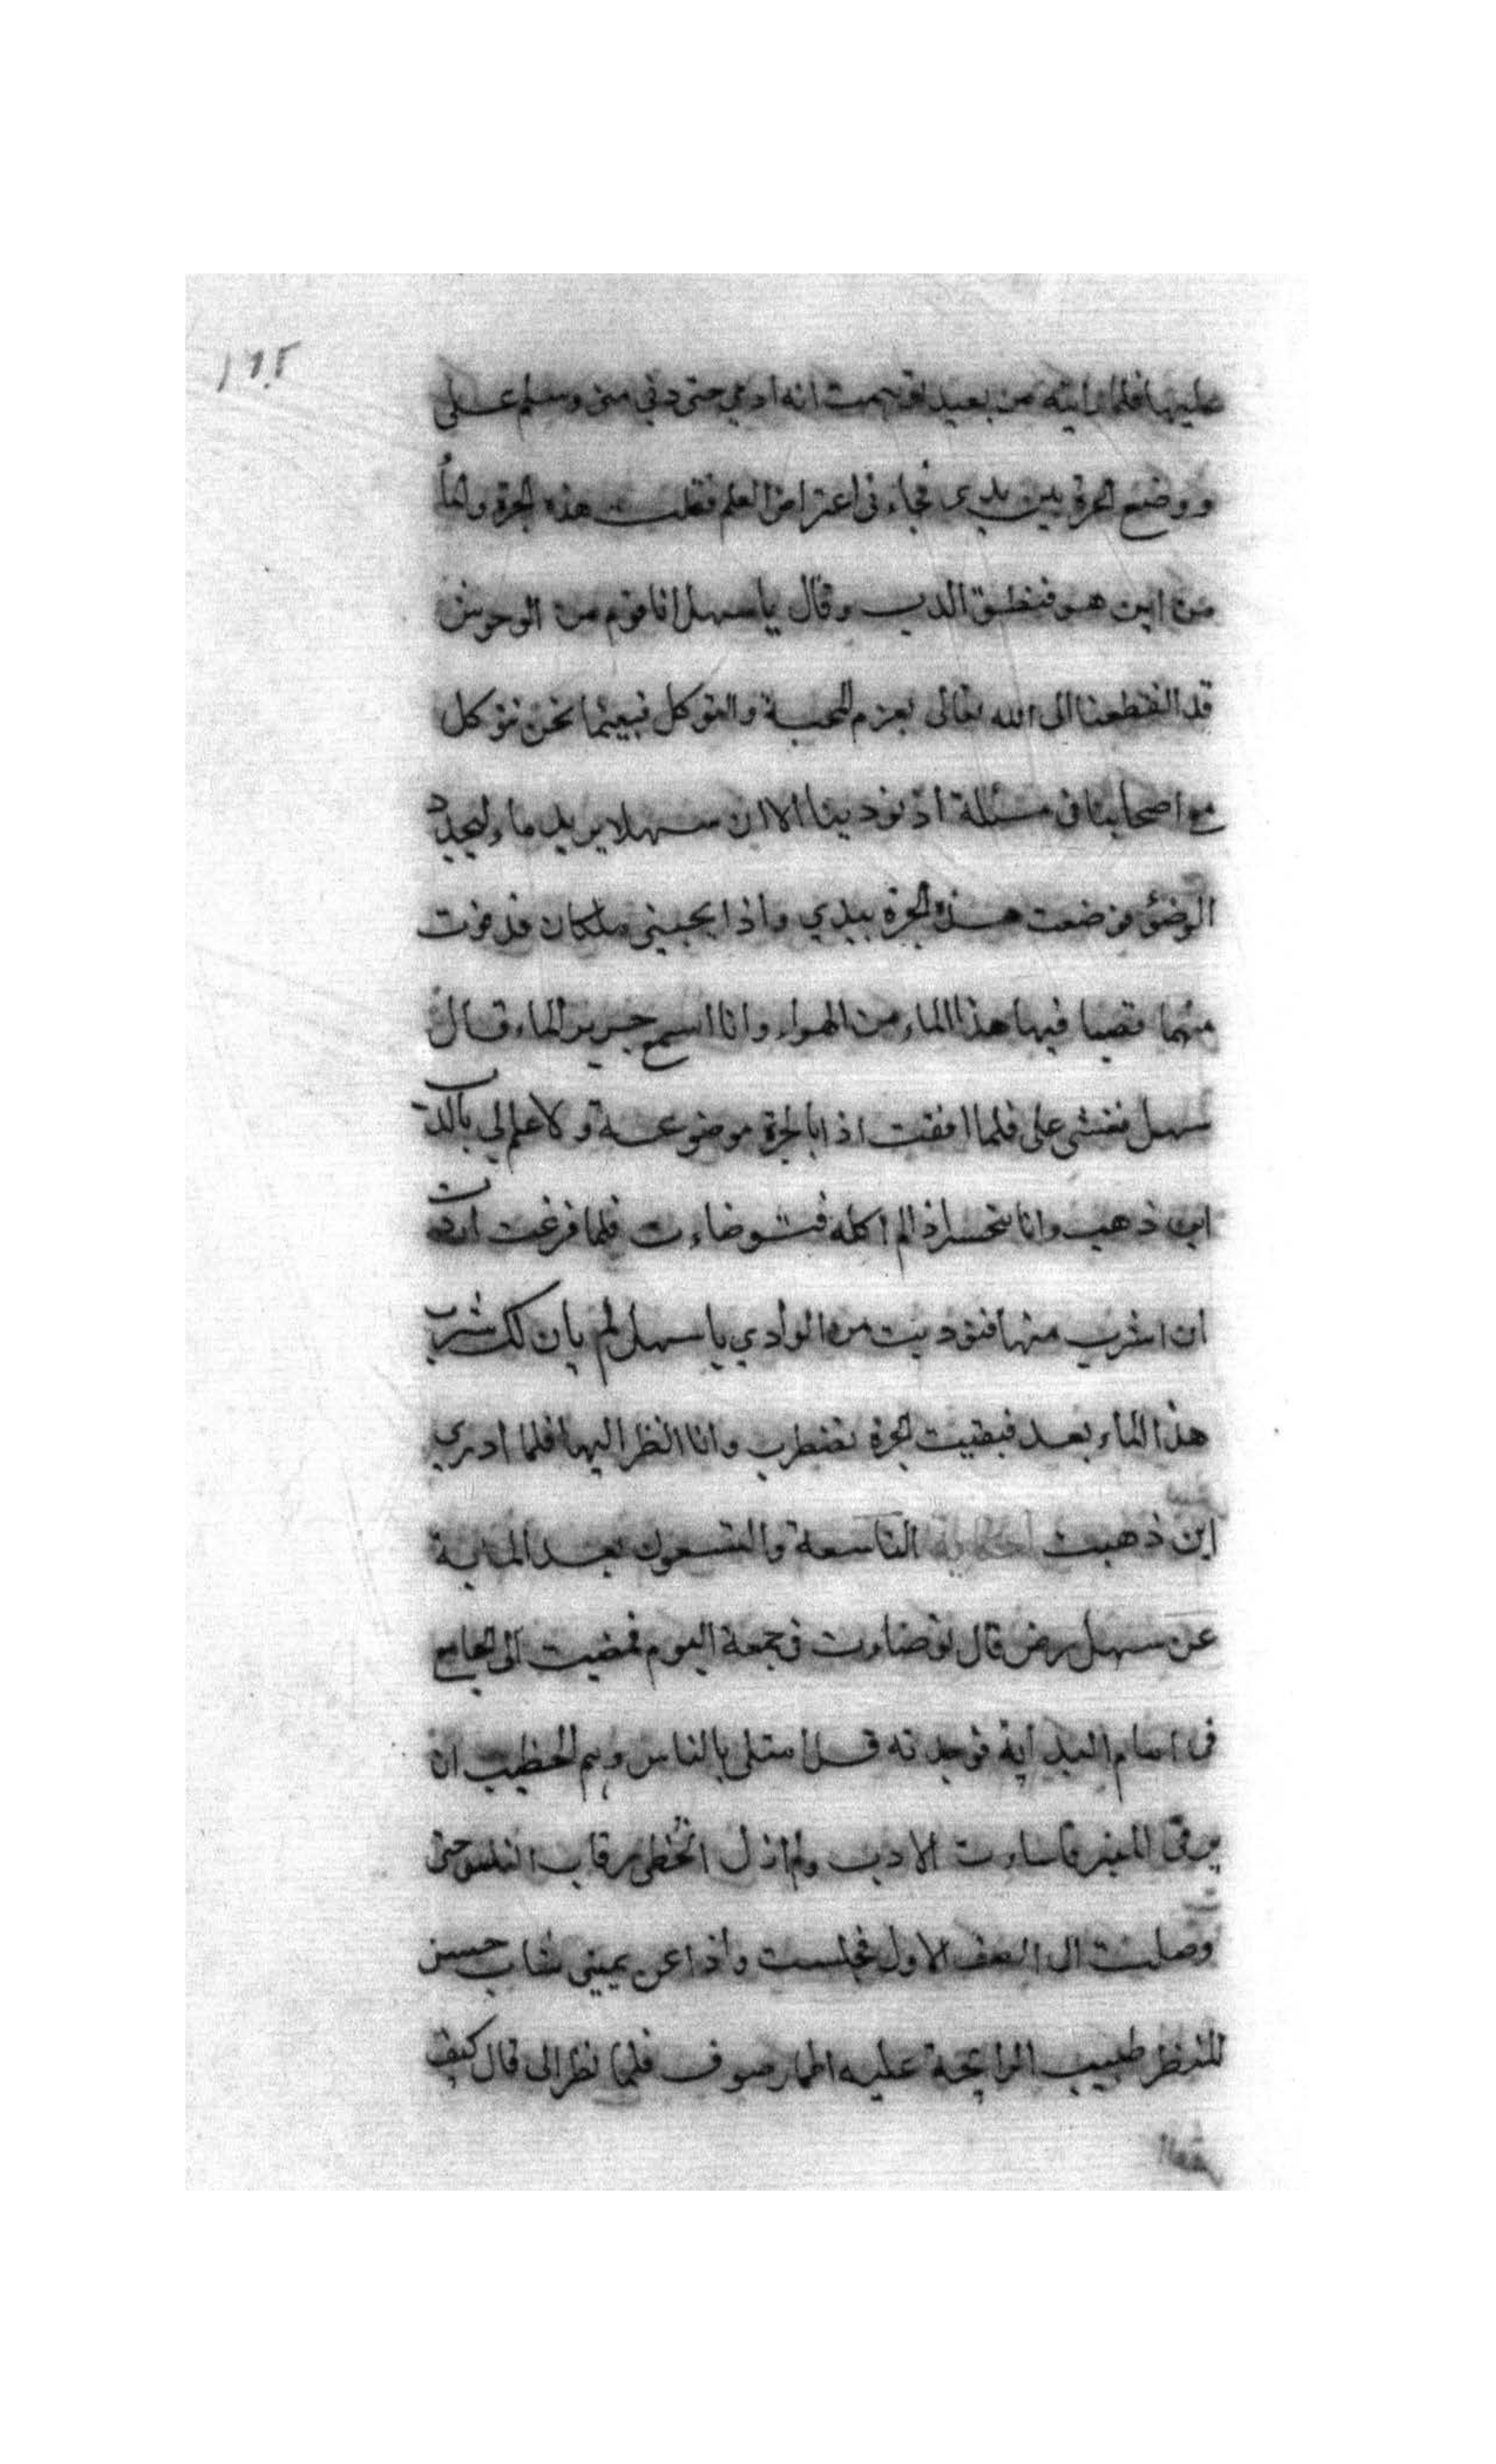 ١٦٢
عليها فلما رايته من بعيد توهمت انه ادمي حتى دنى منى وسلم على
ووضع الجرة بين يدى فجاء نى اعتراض العلم فقلت هذه الجرة والماء
من اين هو فنطق الدب وقال يا سهل انا قوم من الوحوش
قد انقطعنا الى الله تعالى بعزم المحبة والتوكل فبينما نحن نتوكل
مع اصحابنا فى مسئلة اذ نودينا الا ان سهلا يريد ماء ليجدد
الوضوء فوضعت هذه الجرة بيدي واذا بجنبى ملكان فدنوت
منهما فصبا فيها هذا الماء من الهواء وانا اسمع خرير الماء قال
سهل فغشى على فلما افقت اذا بالجرة موضوعة ولا علم لي بالدب
اين ذهب وانا متحسر اذ لم اكلمه فتوضاءت فلما فرغت اردت
ان اشرب منها فنوديت من الوادي يا سهل لم يان لك شرب
هذا الماء بعد فبقيت الجرة تضطرب وانا انظر اليها فلما ادري
اين ذهبت الحكاية التاسعة والتسعون بعد الماية
عن سهل رض قال توضاءت فى جمعة اليوم فمضيت الى الجامع
فى ايام البداية فوجدته قد امتلى بالناس وهم الخطيب ان
يرقى المنبر فاساءت الادب ولم ازل اتخطى رقاب الناس حتى
وصلت الى الصف الاول فجلست واذا عن يمينى شاب حسن
المنظر طيب الرايحة عليه اطمار صوف فلما نظر الى قال كيف